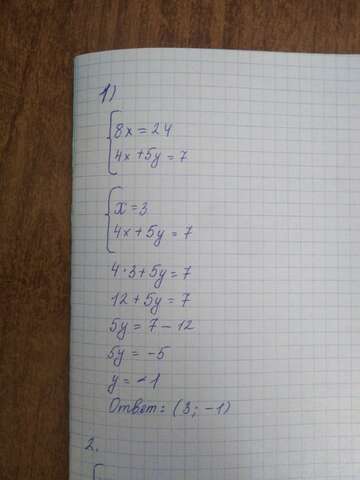 1)
8x = 24
4x + 5y = 7
x = 3
4x + 5y = 7
4 · 3 + 5y = 7
12 + 5y = 7
5y = 7 - 12
5y = -5
y = -1
Ответ: (3; -1)
2.